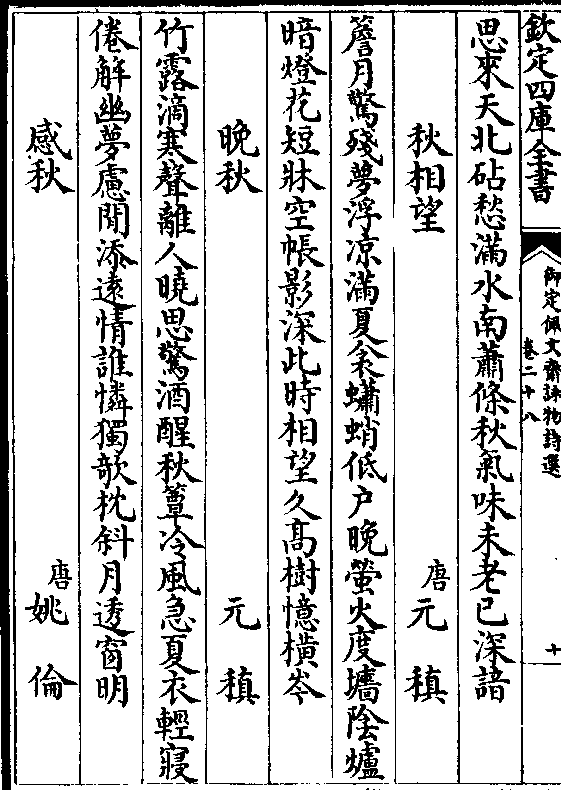 欽定四庫全書
御定佩文齋詠物詩選
卷二十八
十
思來天北砧愁滿水南蕭條秋氣味未老已深諳
秋相望
唐元稹
簷月驚殘夢浮凉滿夏衾蠨蛸低户晚螢火度墻陰爐
暗燈花短牀空帳影深此時相望久高樹憶橫岑
晚秋
元稹
竹露滴寒聲離人曉思驚酒醒秋簟冷風急夏衣輕寢
倦解幽夢慮閒添遠情誰憐獨欹枕斜月透窗明
感秋
唐姚倫